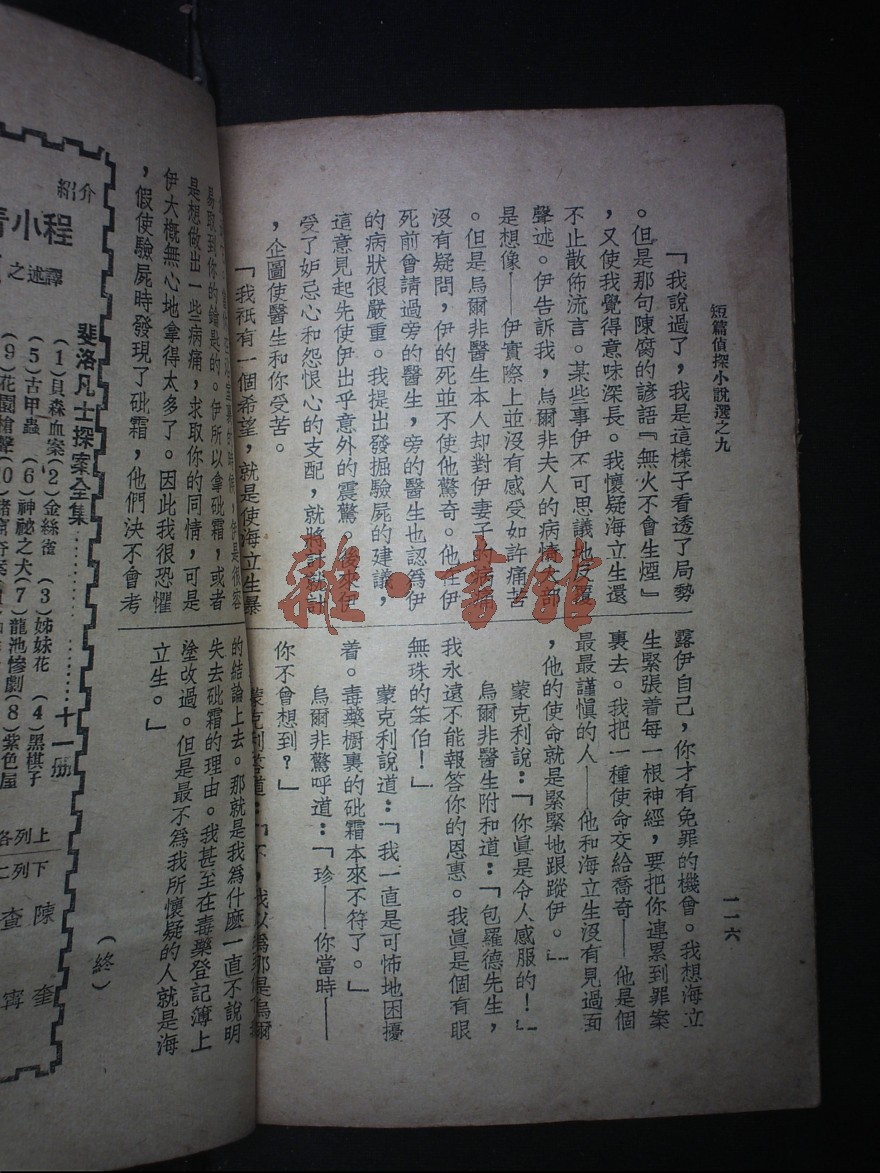 短篇偵探小說選之九
一一六
「我說過了,我是這樣子看透了局勢
。但是那句陳腐的諺語『無火不會生煙』
,又使我覺得意味深長。我懷疑海立生還
不止散佈流言。某些事伊不可思議地反覆
聲述。伊告訴我,烏爾非夫人的病情大部
是想像——伊實際上並沒有感受如許痛苦
。但是烏爾非醫生本人却對伊妻子的病
沒有疑問,伊的死並不使他驚奇。他在伊
死前曾請過旁的醫生,旁的醫生也認爲伊
的病狀很嚴重。我提出發掘驗屍的建議,
這意見起先使伊出乎意外的震驚。後來伊
受了妒忌心和怨恨心的支配,就將計就計
,企圖使醫生和你受苦。
「我祇有一個希望,就是使海立生暴
露伊自己,你才有免罪的機會。我想海立
生緊張着每一根神經,要把你連累到罪案
裏去。我把一種使命交給喬奇——他是個
最最謹慎的人——他和海立生沒有見過面
,他的使命就是緊緊地跟蹤伊。」
蒙克利說:「你眞是令人感服的!」
烏爾非醫生附和道:「包羅德先生,
我永遠不能報答你的恩惠。我眞是個有眼
無珠的笨伯!」
蒙克利說道:「我一直是可怖地困擾
着。毒藥橱裏的砒霜本來不符了。」
烏爾非驚呼道:「珍——你當時——
你不曾想到?」
蒙克利答道:「不,我以爲那是烏爾
的時候,伊是很容
易取到你的鑰匙的。伊所以拿砒霜,或者
是想做出一些病痛,求取你的同情,可是
伊大概無心地拿得太多了。因此我很恐懼
,假使驗屍時發現了砒霜,他們決不會考
的結論上去。那就是我爲什麽一直不說明
失去砒霜的理由。我甚至在毒藥登記簿上
塗改過。但是最不爲我所懷疑的人就是海
立生。」
(終)
紹介
程小青
譯述之
斐洛凡士探案全集……十一册
(1)貝森血案(2)金絲雀(3)姊妹花(4)黑棋子
(5)古甲蟲(6)神祕之犬(7)龍池慘劇(8)紫色屋
(9)花園槍聲(10)
上列各
下列二
陳查
奎寗
雜·書館